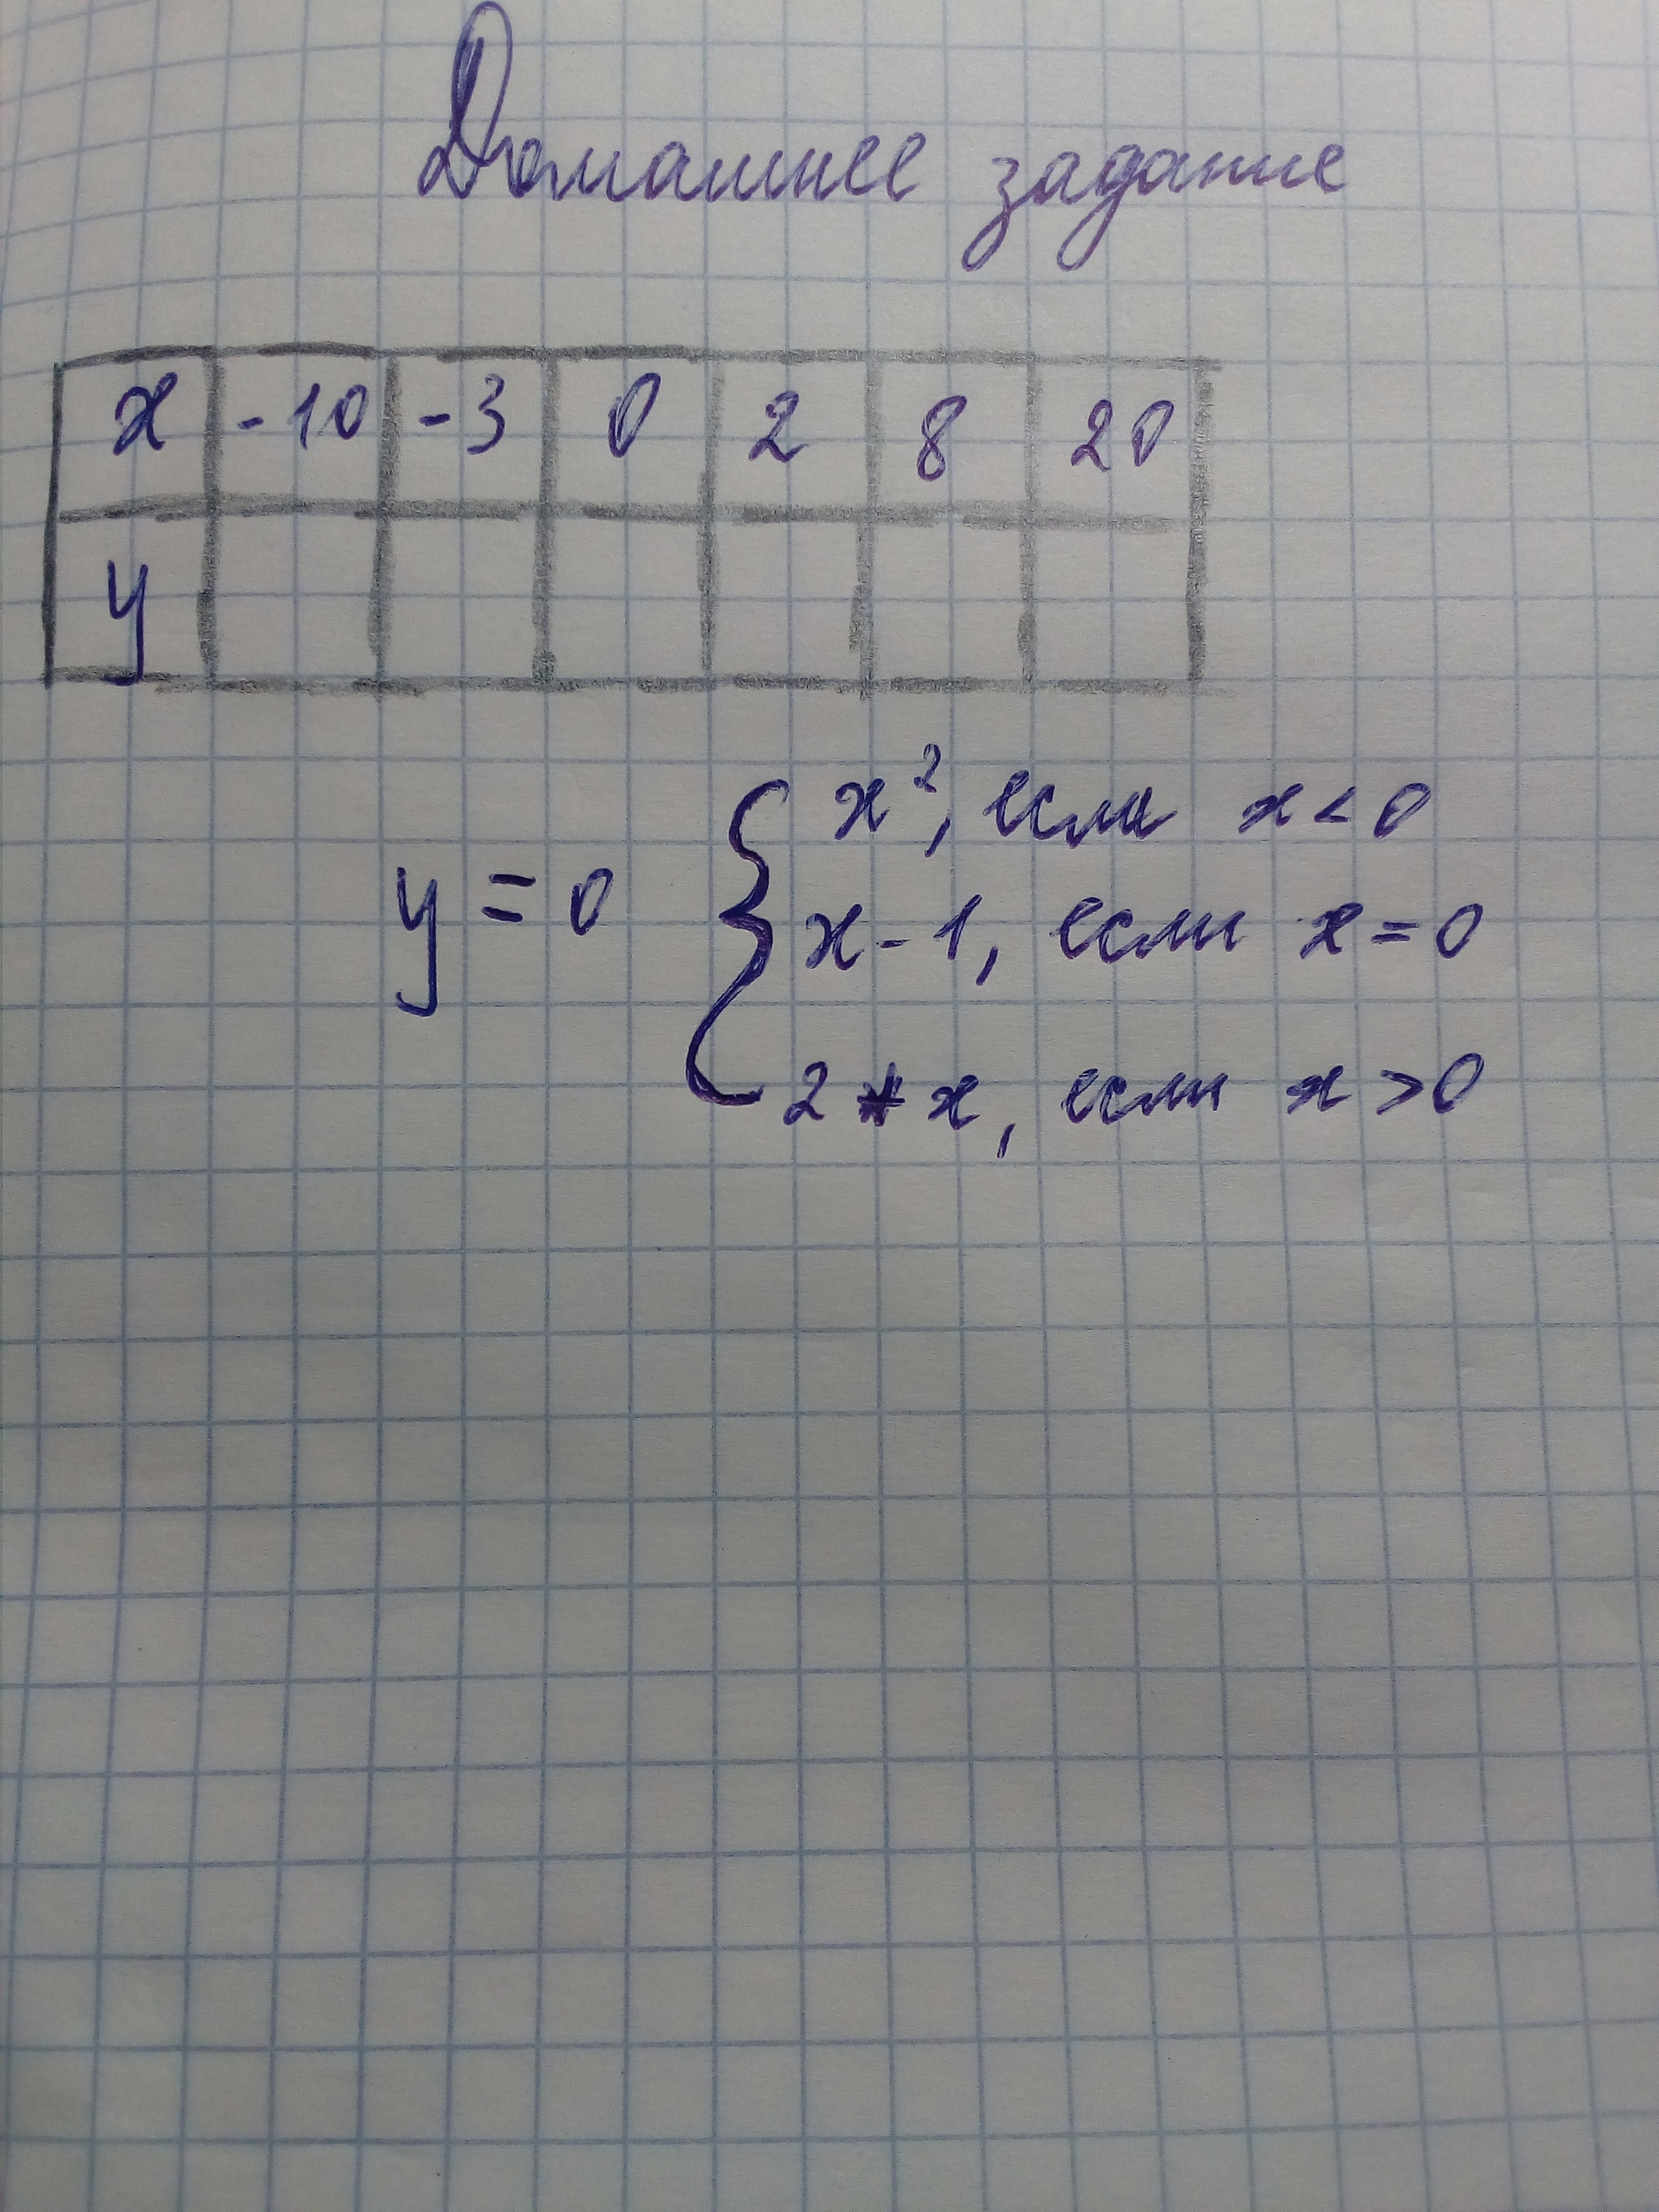 Домашнее задание
x -10 -3 0 2 8 20
y
x², если x<0
y=0 x-1, если x=0
2*x, если x>0